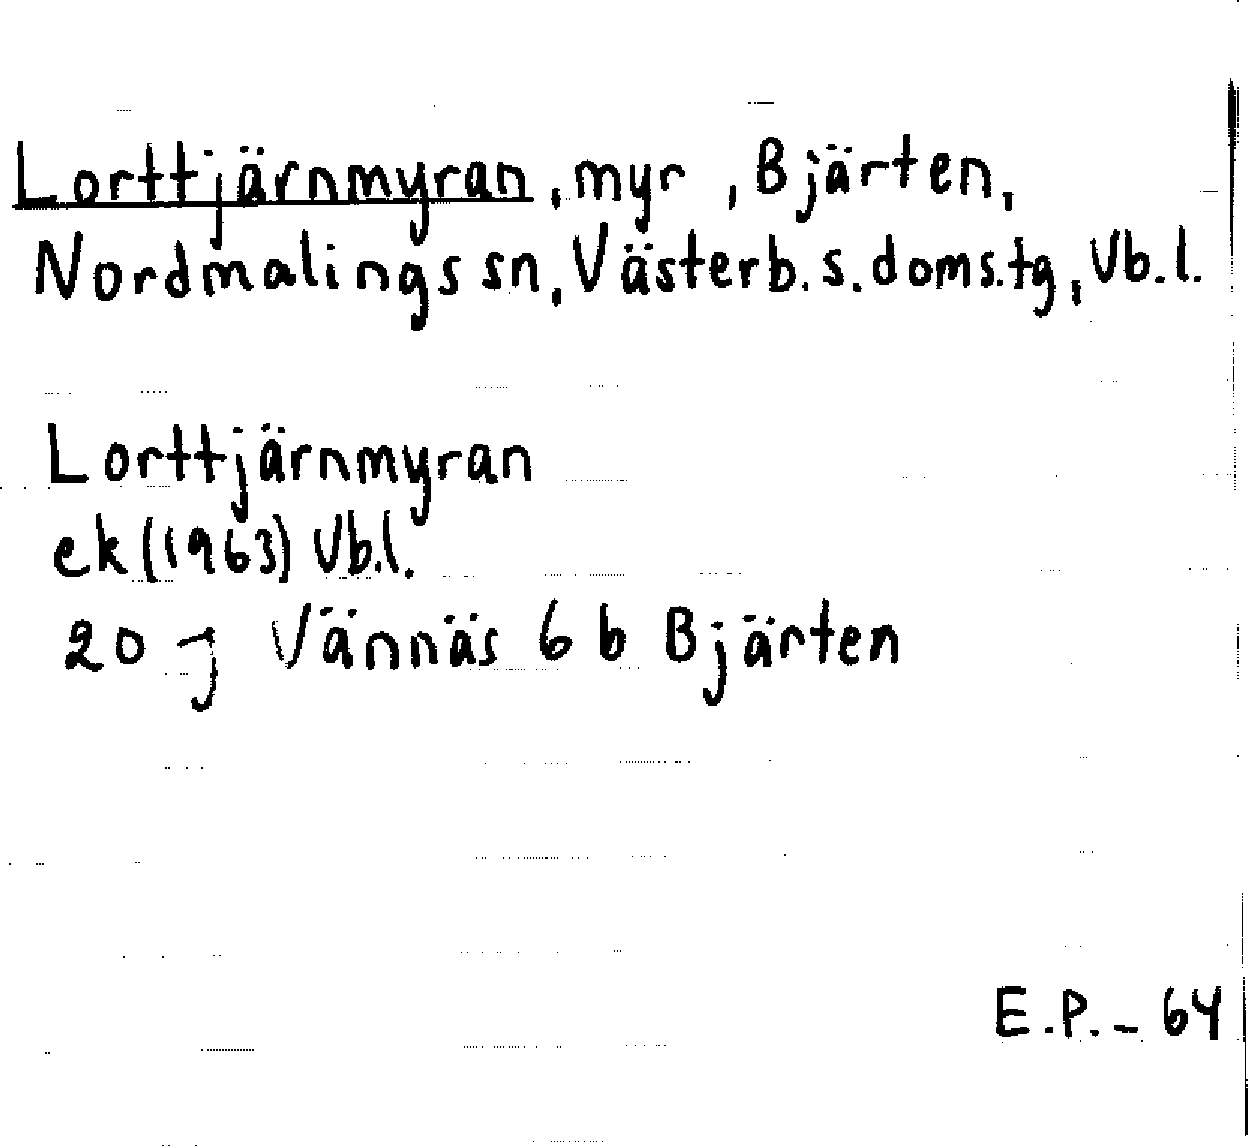 Lorttjärnmyran, myr, Bjärten,
Nordmalings sn, Västerb. s. doms.tg, Vb.l.
Lorttjärnmyran
ek (1963) Vb.l.
20 J Vännäs 6 b Bjärten
E.P. - 64